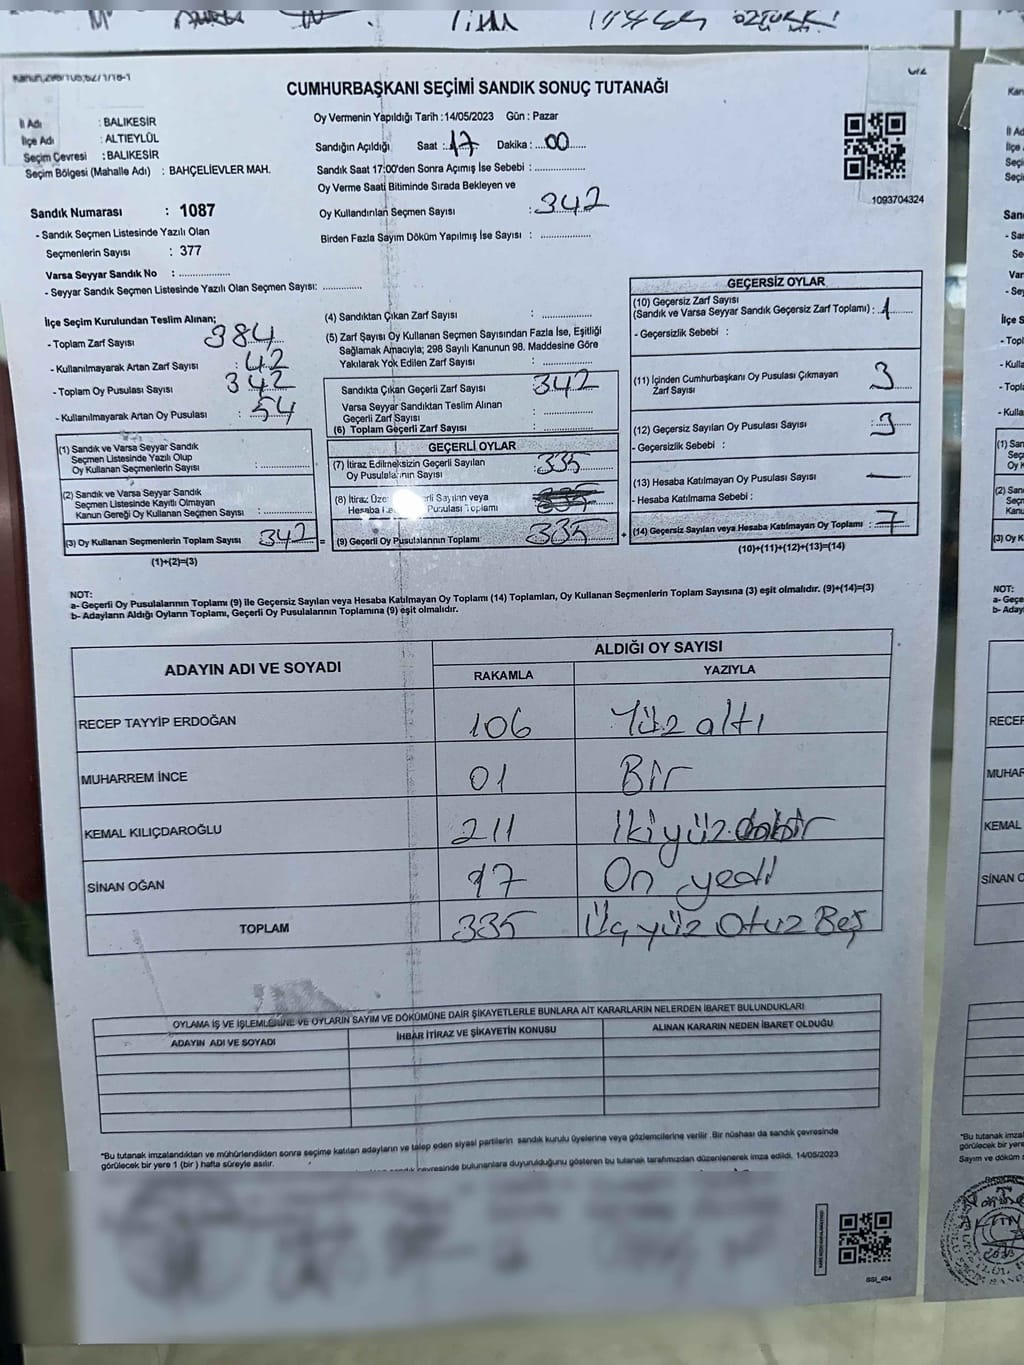 Kanun;298/105;82/1/18-1
CUMHURBAŞKANI SEÇİMİ SANDIK SONUÇ TUTANAĞI
İl Adı : BALIKESİR
İlçe Adı : ALTIEYLÜL
Seçim Çevresi : BALIKESİR
Seçim Bölgesi (Mahalle Adı) : BAHÇELİEVLER MAH.
Sandık Numarası : 1087
- Sandık Seçmen Listesinde Yazılı Olan
Seçmenlerin Sayısı : 377
Varsa Seyyar Sandık No : ..................
- Seyyar Sandık Seçmen Listesinde Yazılı Olan Seçmen Sayısı: .............
Oy Vermenin Yapıldığı Tarih :14/05/2023 Gün : Pazar
Sandığın Açıldığı Saat : 17 Dakika : 00
Sandık Saat 17:00'den Sonra Açımış İse Sebebi : ..................
Oy Verme Saati Bitiminde Sırada Bekleyen ve
Oy Kullandırılan Seçmen Sayısı : 342
Birden Fazla Sayım Döküm Yapılmış İse Sayısı : ..................
1093704324
İlçe Seçim Kurulundan Teslim Alınan;
- Toplam Zarf Sayısı : 384
- Kullanılmayarak Artan Zarf Sayısı : 42
- Toplam Oy Pusulası Sayısı : 342
- Kullanılmayarak Artan Oy Pusulası : 54
(1) Sandık ve Varsa Seyyar Sandık
Seçmen Listesinde Yazılı Olup
Oy Kullanan Seçmenlerin Sayısı : ..................
(2) Sandık ve Varsa Seyyar Sandık
Seçmen Listesinde Kayıtlı Olmayan
Kanun Gereği Oy Kullanan Seçmen Sayısı : ..................
(3) Oy Kullanan Seçmenlerin Toplam Sayısı 342 =
(1)+(2)=(3)
(4) Sandıktan Çıkan Zarf Sayısı : ..................
(5) Zarf Sayısı Oy Kullanan Seçmen Sayısından Fazla İse, Eşitliği
Sağlamak Amacıyla; 298 Sayılı Kanunun 98. Maddesine Göre
Yakılarak Yok Edilen Zarf Sayısı : ..................
Sandıkta Çıkan Geçerli Zarf Sayısı : 342
Varsa Seyyar Sandıktan Teslim Alınan
Geçerli Zarf Sayısı : ..................
(6) Toplam Geçerli Zarf Sayısı : ..................
GEÇERLİ OYLAR
(7) İtiraz Edilmeksizin Geçerli Sayılan
Oy Pusulalarının Sayısı : 335
(8) İtiraz Üze erli Sayılan veya
Hesaba Pusulası Toplamı
(9) Geçerli Oy Pusulalarının Toplamı 335 +
GEÇERSİZ OYLAR
(10) Geçersiz Zarf Sayısı
(Sandık ve Varsa Seyyar Sandık Geçersiz Zarf Toplamı) : 1
- Geçersizlik Sebebi :
(11) İçinden Cumhurbaşkanı Oy Pusulası Çıkmayan
Zarf Sayısı 3
(12) Geçersiz Sayılan Oy Pusulası Sayısı : 3
- Geçersizlik Sebebi :
(13) Hesaba Katılmayan Oy Pusulası Sayısı : —
- Hesaba Katılmama Sebebi :
(14) Geçersiz Sayılan veya Hesaba Katılmayan Oy Toplamı : 7
(10)+(11)+(12)+(13)=(14)
NOT:
a- Geçerli Oy Pusulalarının Toplamı (9) ile Geçersiz Sayılan veya Hesaba Katılmayan Oy Toplamı (14) Toplamları, Oy Kullanan Seçmenlerin Toplam Sayısına (3) eşit olmalıdır. (9)+(14)=(3)
b- Adayların Aldığı Oyların Toplamı, Geçerli Oy Pusulalarının Toplamına (9) eşit olmalıdır.
ADAYIN ADI VE SOYADI ALDIĞI OY SAYISI
RAKAMLA YAZIYLA
RECEP TAYYİP ERDOĞAN 106 Yüz altı
MUHARREM İNCE 01 Bir
KEMAL KILIÇDAROĞLU 211 İkiyüz
SİNAN OĞAN 17 On yedi
TOPLAM 335 Üçyüz Otuz Beş
OYLAMA İŞ VE İŞLEMLERİNE VE OYLARIN SAYIM VE DÖKÜMÜNE DAİR ŞİKAYETLERLE BUNLARA AİT KARARLARIN NELERDEN İBARET BULUNDUKLARI
ADAYIN ADI VE SOYADI İHBAR İTİRAZ VE ŞİKAYETİN KONUSU ALINAN KARARIN NEDEN İBARET OLDUĞU
*Bu tutanak imzalandıktan ve mühürlendikten sonra seçime katılan adayların ve talep eden siyasi partilerin sandık kurulu üyelerine veya gözlemcilerine verilir .Bir nüshası da sandık çevresinde
görülecek bir yere 1 (bir ) hafta süreyle asılır.
çevresinde bulunanlara duyurulduğunu gösteren bu tutanak tarafımızdan düzenlenerek imza edildi. 14/05/2023